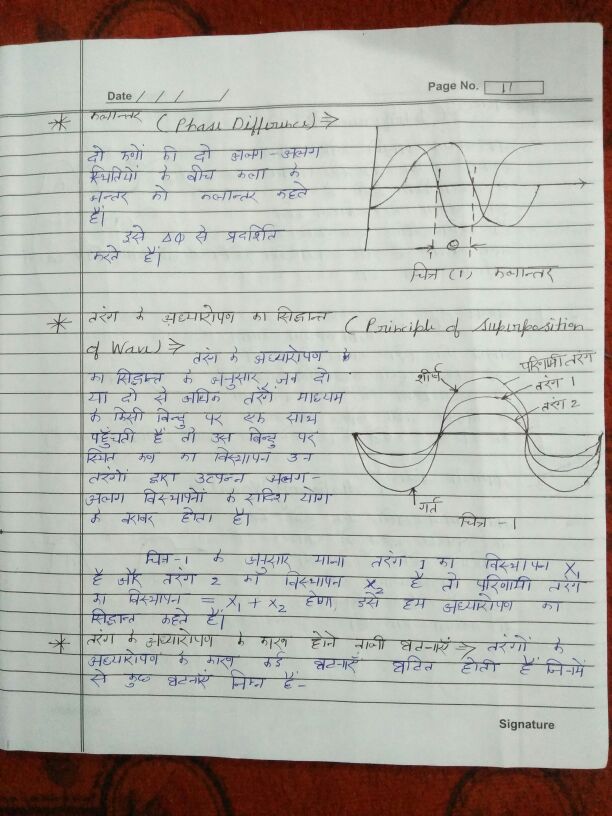 Date / / / /
Page No. 11
* कलान्तर (Phase Difference) ⇒
दो कणों की दो अलग-अलग
स्थितियों के बीच कला के
अन्तर को कलान्तर कहते
हैं।
इसे ΔΦ से प्रदर्शित
करते हैं।
θ
चित्र (1) कलान्तर
* तरंग के अध्यारोपण का सिद्धान्त (Principle of Superposition
of Wave) ⇒ तरंग के अध्यारोपण
का सिद्धान्त के अनुसार, जब दो
या दो से अधिक तरंगें माध्यम
के किसी बिन्दु पर एक साथ
पहुँचती हैं तो उस बिन्दु पर
स्थित कण का विस्थापन उन
तरंगों द्वारा उत्पन्न अलग-
अलग विस्थापनों के सदिश योग
के बराबर होता है।
शीर्ष
परिणामी तरंग
तरंग 1
तरंग 2
गर्त
चित्र -1
चित्र-1 के अनुसार माना तरंग 1 का विस्थापन X₁
है और तरंग 2 का विस्थापन X₂ है तो परिणामी तरंग
का विस्थापन = X₁ + X₂ होगा, इसे हम अध्यारोपण का
सिद्धान्त कहते हैं।
* तरंग के अध्यारोपण के कारण होने वाली घटनाएँ ⇒ तरंगों के
अध्यारोपण के कारण कई घटनाएँ घटित होती हैं जिनमें
से कुछ घटनाएँ निम्न हैं-
Signature